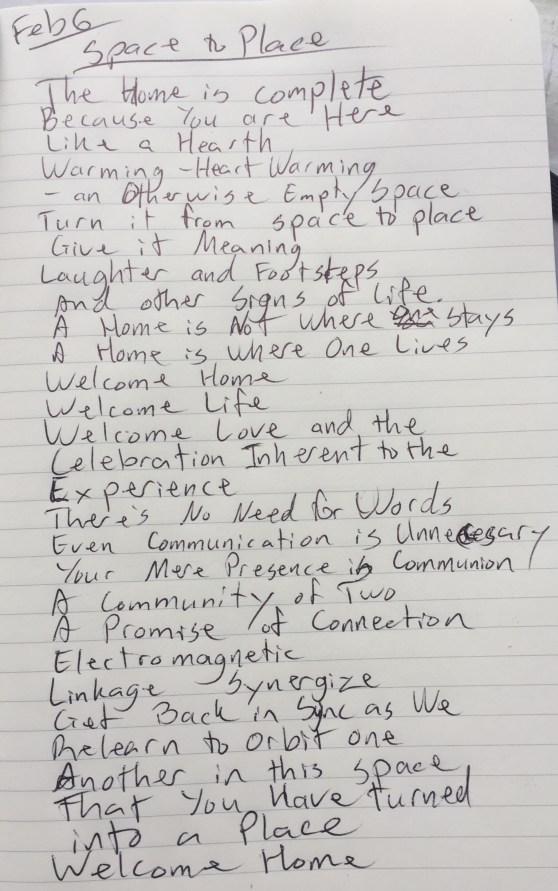 Feb 6
Space to Place
The Home is complete
Because You are Here
Like a Hearth
Warming - Heart Warming
- an Otherwise Empty Space
Turn it from space to place
Give it Meaning
Laughter and Footsteps
And other Signs of Life.
A Home is Not where stays
A Home is where One Lives
Welcome Home
Welcome Life
Welcome Love and the
Celebration Inherent to the
Experience
There's No Need for Words
Even Communication is Unnecesary
Your Mere Presence is Communion
A Community of Two
A Promise of Connection
Electromagnetic
Linkage Synergize
Get Back in Sync as We
Relearn to Orbit one
Another in this space
That You Have turned
into a Place
Welcome Home